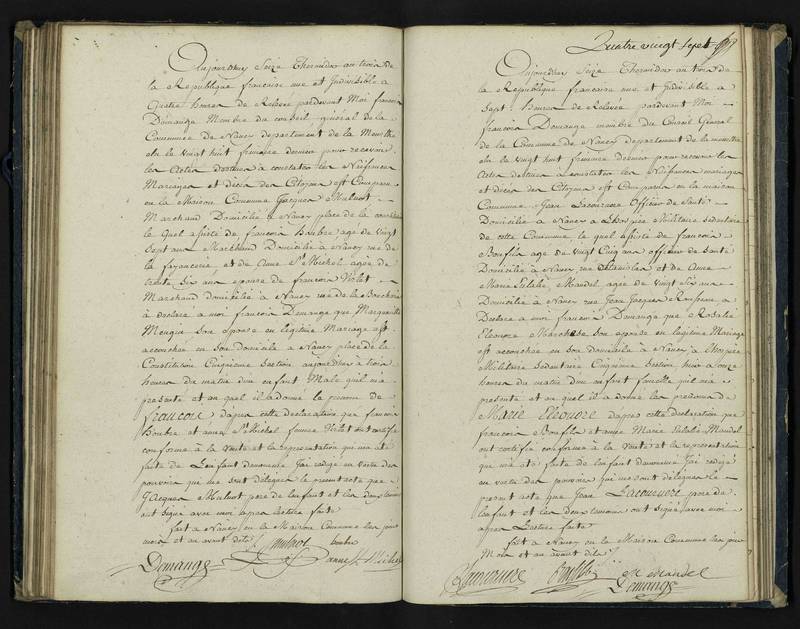 Aujourdhuy Seize Thermidor an trois de
la Republique francaise une et Indivisible a
quatre heures de Relevée pardevant Moi francois
Domange Membre du conseil général de la
Commune de Nancy departement de la Meurthe
elu le vingt huit frimaire dernier pour recevoir
les Actes destinés a constater les Naissances
Mariages et décès des Citoyens est Comparu
en la Maison Commune Jacques Mulnot
Marchand Domicilié a Nancy place de la
le quel assisté de francois Boubre agé de vingt
sept ans Marchand Domicilié a Nancy rue de
la fayancerie, et de Anne St Michel agée de
trente six ans epouse de francois Violet
Marchand domicilié a Nancy rue de la
a déclaré a moi francois Domange que Marguerite
Mengin son épouse en légitime Mariage est
accouchée en son domicile a Nancy place de la
Constitution Cinquieme section aujourdhuy a trois
heures du matin d'un enfant Male qu'il m'a
présenté et au quel il a donné le prénom de
francois d'apres cette déclaration que francois
Boubre et anne St Michel femme Violet ont certifié
conforme a la vérité et la représentation qui m'a été
faite de L'enfant denommé J'ai rédigé en vertu des
pouvoirs qui me sont délégués le présent acte que
Jacques Mulnot pere de l'enfant et les deux témoins
ont signé avec moi apres Lecture faite
fait a Nancy en la Maison Commune les jour
mois et an avant dits
Mulnot boubre
Domange anne St Michel
Quatre vingt sept
Aujourdhuy Seize Thermidor an trois de
la Republique francaise une et Indivisible a
sept heures de Relevée pardevant Moi
francois Domange membre du Conseil Général
de la Commune de Nancy departement de la meurthe
elu le vingt huit frimaire dernier pour recevoir les
Actes destinés a constater les Naissances mariages
et décès des Citoyens est Comparu en la maison
Commune Jean Officier de Santé
Domicilié a Nancy a L'hospice Militaire sedentaire
de cette Commune le quel assisté de francois
Bonfils agé de vingt Cinq ans officier de santé
Domicilié a Nancy rue Stanislas et de Anne
Marie Eulalie Mandel agée de vingt Six ans
Domicilié a Nancy rue Jean Jacques Rousseau a
Déclaré a moi francois Domange que Rosalie
Eleonore Marchese Son épouse en légitime Mariage
est accouchée en son domicile a Nancy a L'hospice
Militaire sedentaire Cinquieme Section hier a onze
heures du matin d'un enfant femelle qu'il m'a
présenté et au quel il a donné les prénoms de
Marie Eleonore d'apres cette declaration que
francois Bonfils et anne Marie Eulalie Mandel
ont certifié conforme a la vérité et la représentation
qui m'a été faite de L'enfant denommé J'ai redigé
en vertu des pouvoirs qui me sont délégués le
présent acte que Jean pere de
L'enfant et les deux temoins ont signé avec moi
apres Lecture faite
fait a Nancy en la Maison Commune les jour
Mois et an avant dits
Bonfils M Mandel
Domange